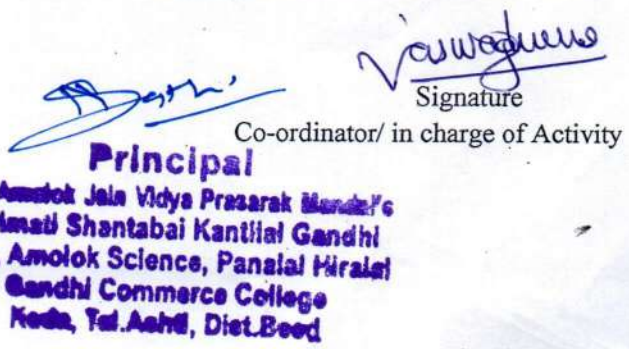 Signature
Co-ordinator/ in charge of Activity
Principal
Amolok Jain Vidya Prasarak Mandal's
Shantabai Kantilal Gandhi
Amolok Science, Panalal Hiralal
Gandhi Commerce College
Kada, Tal.Ashti, Dist.Beed